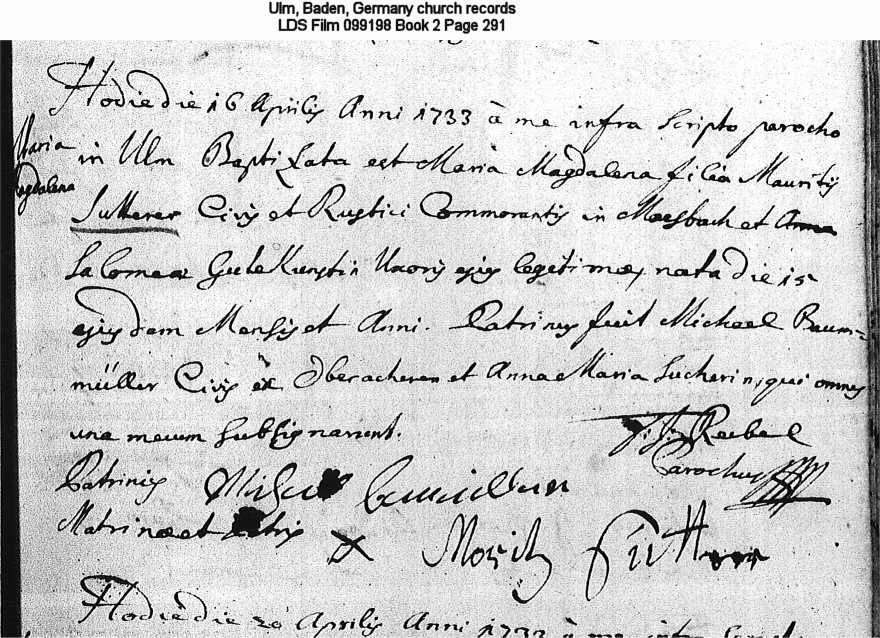 Ulm, Baden, Germany church records
LDS Film 099198 Book 2 Page 291
Hodie die 16 Aprilis Anni 1733 à me infra Scripto parocho
Maria
in Ulm Baptizata est Maria Magdalena filia Mauritij
Magdalena
Sutterer Civis et Rustici Commorantis in Maesbach et Anna
Salomeae Uxoris ejus legitimae, nata die 15
ejusdem Mensis et Anni. Patrinus fuit Michael Baum=
müller Civis ex Oberacheren et Anna Maria Sucherin, qui omnes
una mecum subsignarunt.
Parochus
Patrinus
Matrinae et
x Moritz Sutterer
Hodie die 20 Aprilis Anni 1733 à me infra